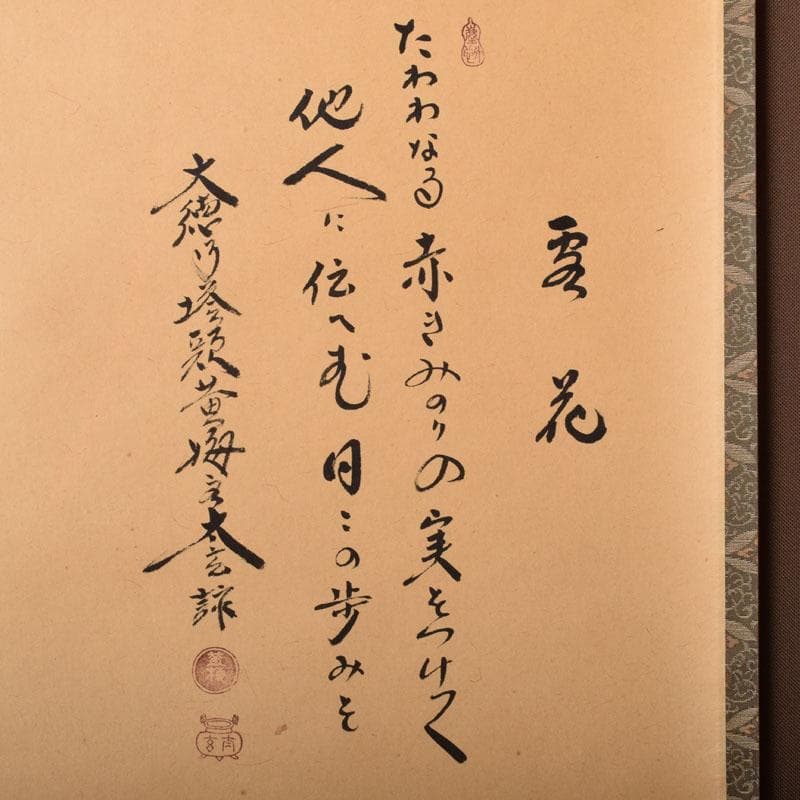 花
たわわなる赤きみのりの実をつけて
他人に伝へむ日々の歩みを
大徳寺塔頭黄梅太玄
黄梅
太玄